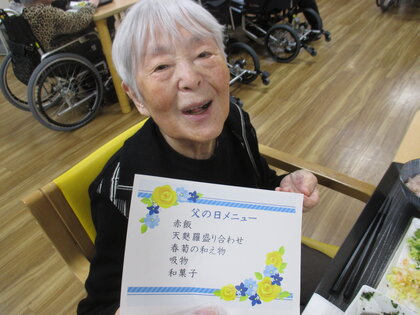 父の日メニュー
赤飯
天麩羅盛り合わせ
春菊の和え物
吸物
和菓子